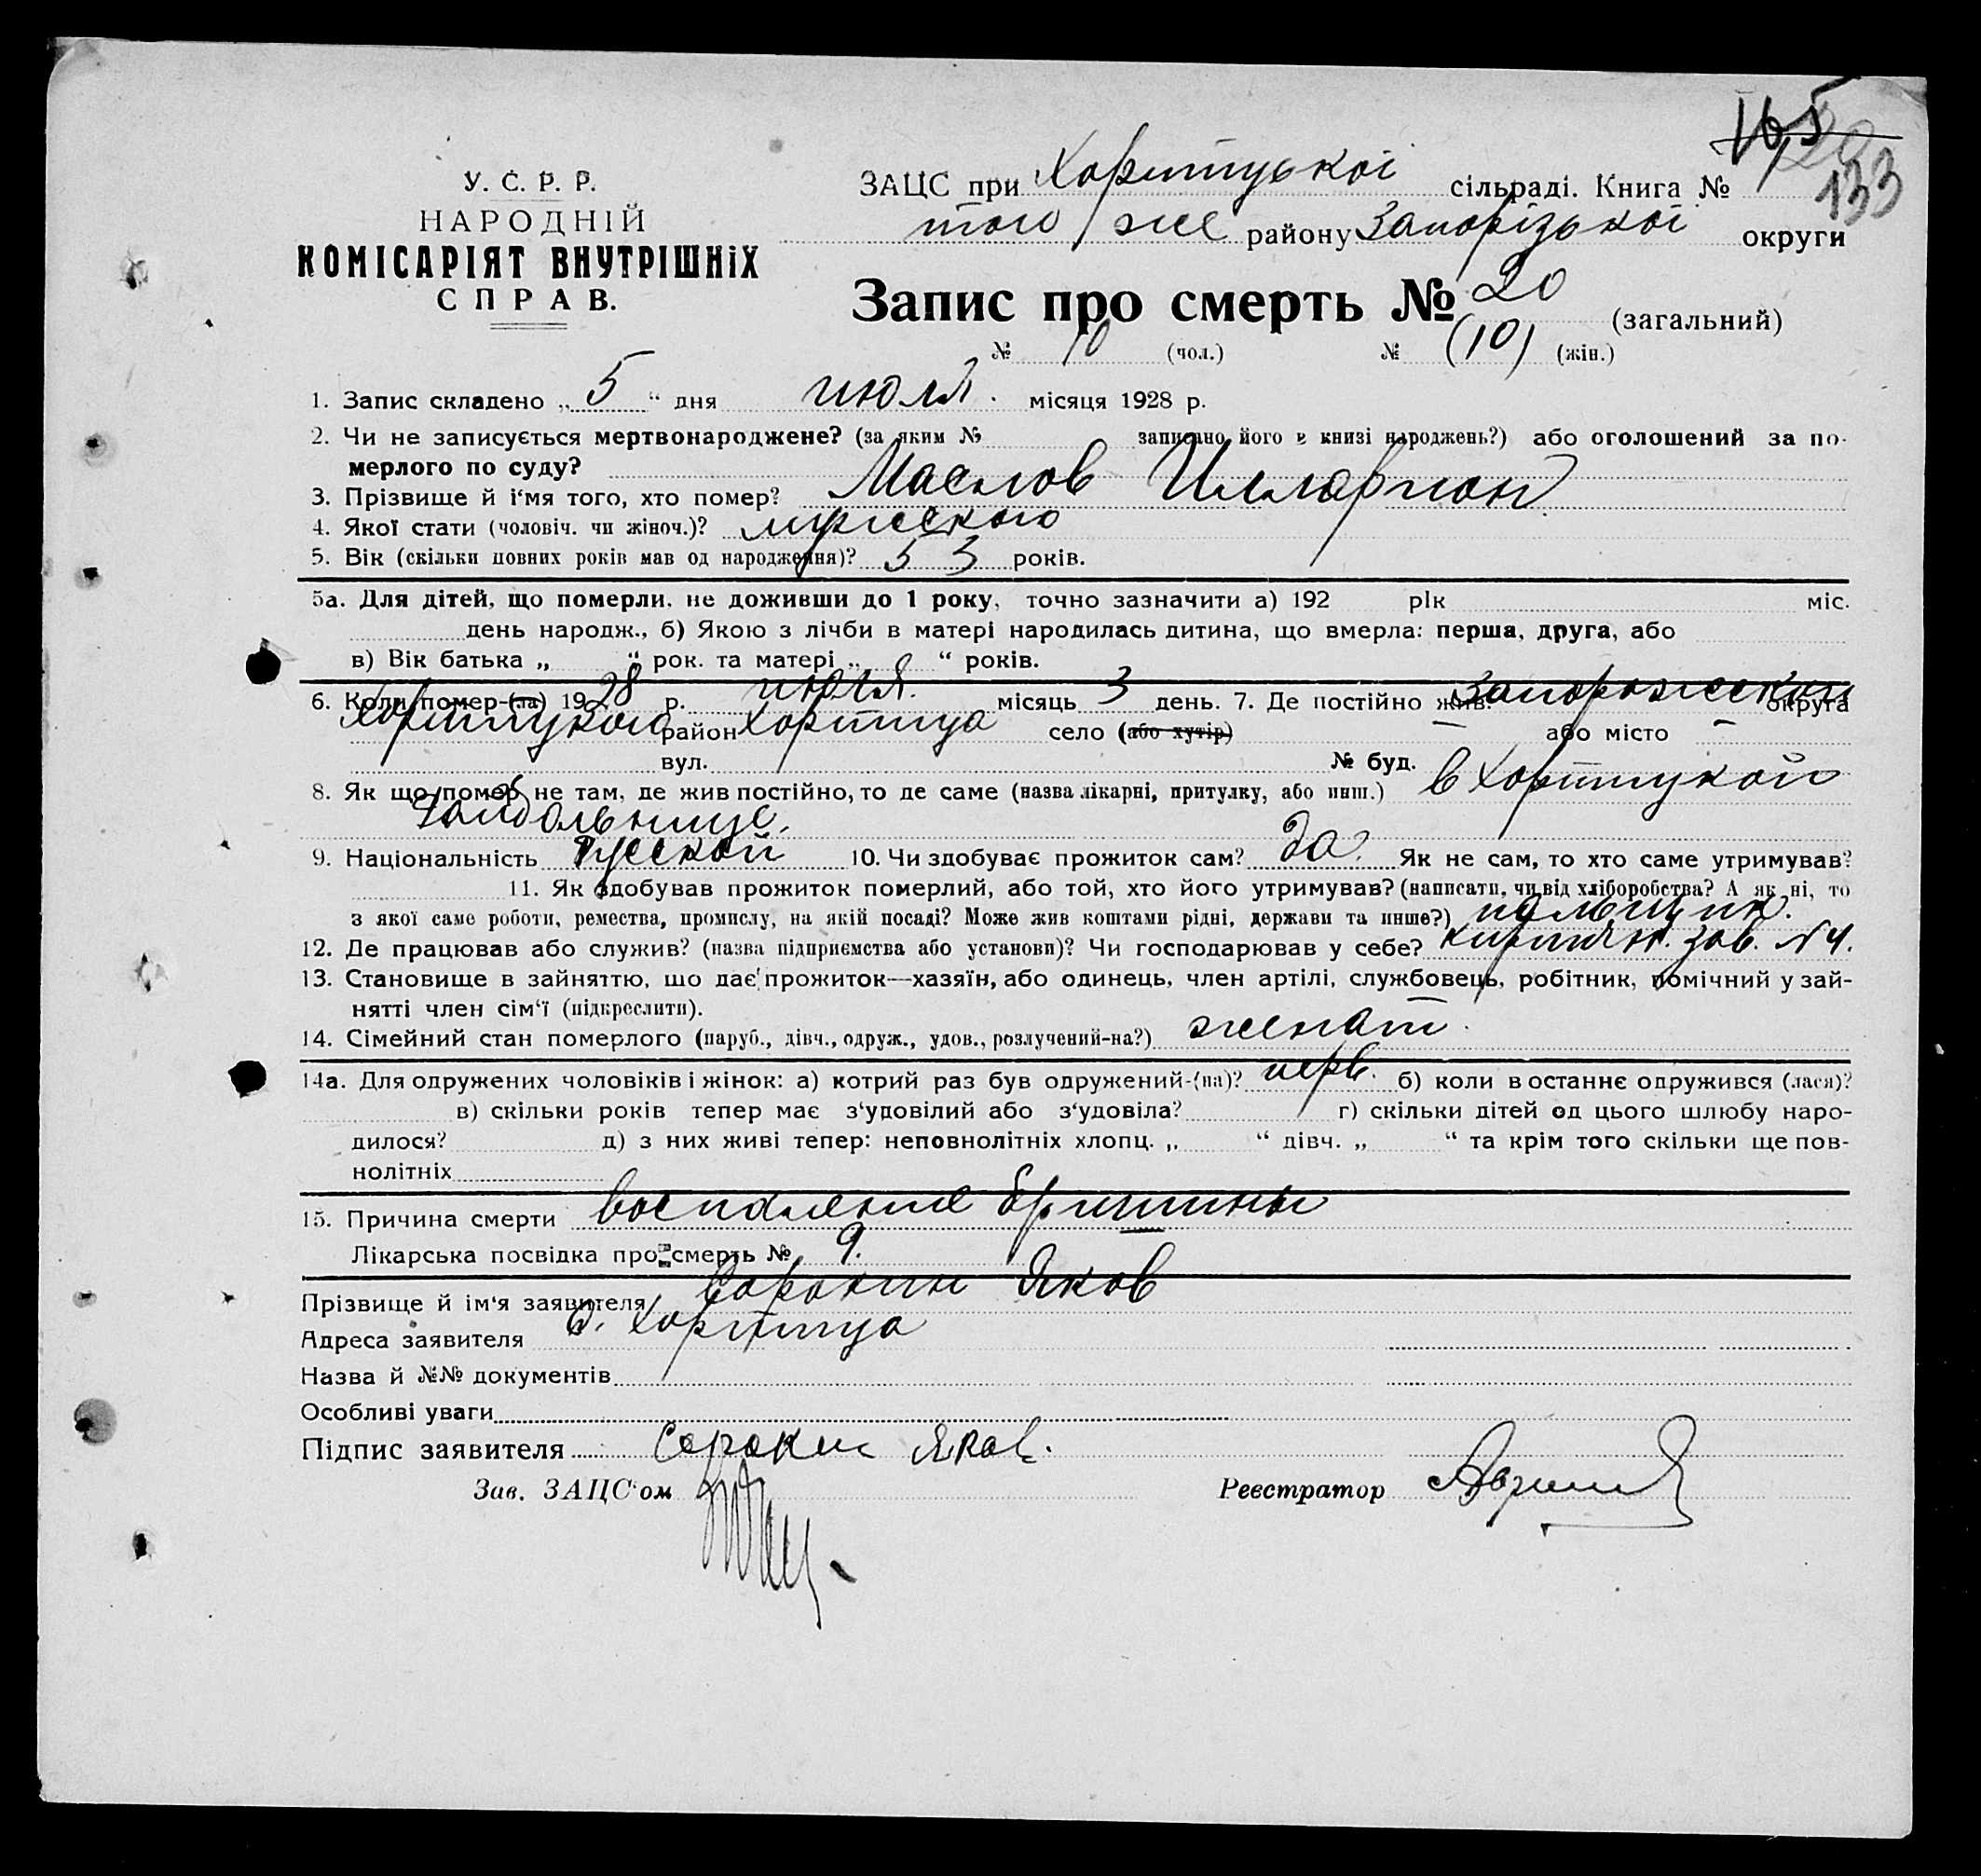 165
20
133
У. С. Р. Р.
НАРОДНІЙ
КОМІСАРІЯТ ВНУТРІШНІХ
СПРАВ.
ЗАЦС при Хортицької сільраді. Книга №
того же району Запорізької округи
Запис про смерть № 20 (загальний)
№ 10 (чол.) № (10) (жін.)
1. Запис складено „ 5 “ дня июля. місяця 1928 р.
2. Чи не записується мертвонароджене? (за яким № записано його в книзі народжень?) або оголошений за по-
мерлого по суду?
3. Прізвище й і‘мя того, хто помер? Маслов Илларион
4. Якої стати (чоловіч. чи жіноч.)? мужского
5. Вік (скільки повних років мав од народження)? 53 років.
5а. Для дітей, що померли, не доживши до 1 року, точно зазначити а) 192 рік міс.
день народж., б) Якою з лічби в матері народилась дитина, що вмерла: перша, друга, або
в) Вік батька „ “ рок. та матері „ “ років.
6. Коли помер-(ла) 19 28 р. июля. місяць 3 день. 7. Де постійно жив: Запорожский округа
Хортицкого район Хортица село (або хутір) — або місто —
вул. № буд.
8. Як що помер не там, де жив постійно, то де саме (назва лікарні, притулку, або инш.) в Хортицкой
райбольнице.
9. Національність русской 10. Чи здобуває прожиток сам? Да. Як не сам, то хто саме утримував?
11. Як здобував прожиток померлий, або той, хто його утримував? (написати, чи від хліборобства? А як ні, то
з якої саме роботи, ремества, промислу, на якій посаді? Може жив коштами рідні, держави та инше?)
12. Де працював або служив? (назва підприємства або установи)? Чи господарював у себе? кирпичн. зав. №4.
13. Становище в зайняттю, що дає прожиток—хазяїн, або одинець, член артілі, службовець, робітник, помічний у зай-
нятті член сім‘ї (підкреслити).
14. Сімейний стан померлого (паруб., дівч., одруж., удов., розлучений-на?) женат.
14а. Для одружених чоловіків і жінок: а) котрий раз був одружений-(на)? перв. б) коли в останнє одружився (лася)?
в) скільки років тепер має з‘удовілий або з‘удовіла? г) скільки дітей од цього шлюбу наро-
дилося? д) з них живі тепер: неповнолітніх хлопц. „ “ дівч. „ “ та крім того скільки ще пов-
нолітніх
15. Причина смерти воспаление брюшины
Лікарська посвідка про смерть № 9.
Прізвище й ім‘я заявителя Сорокин Яков
Адреса заявителя с. Хортица
Назва й №№ документів
Особливі уваги
Підпис заявителя Сорокин Яков.
Зав. ЗАЦС‘ом
Реєстратор